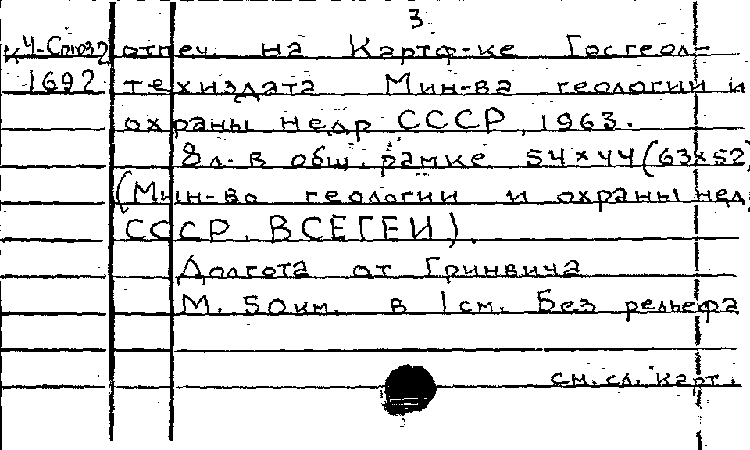 3
К 4-Союз 2 отпеч. на Картф-ке Госгеол-
1692 техиздата Мин-ва геологии и
охраны недр СССР, 1963.
8 л. в общ. рамке 54×44 (63×52)
(Мин-во геологии и охраны нед
СССР. ВСЕГЕИ).
Долгота от Гринвича
М. 50 км. в 1 см. Без рельефа
см. сл. карт.